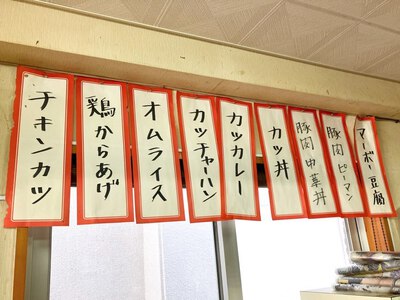 マーボー豆腐
豚肉ピーマン
豚肉中華丼
カツ丼
カツカレー
カツチャーハン
オムライス
鶏からあげ
チキンカツ